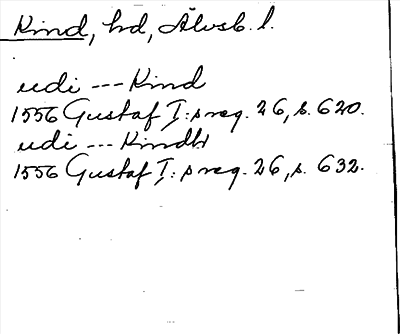 Kind, hd, Älvsb. l.
udi --- Kind
1556 Gustaf I:s reg. 26, s. 620.
udi --- Kindh
1556 Gustaf I:s reg. 26, s. 632.